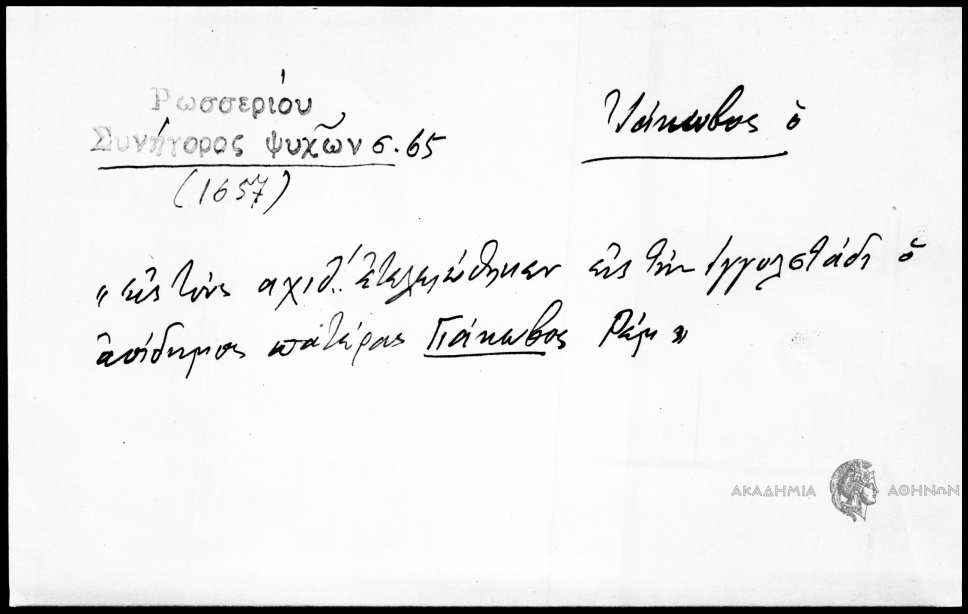 Ρωσσερίου
Συνήγορος ψυχῶν σ. 65
(1657)
Ἰάκωβος ὁ
"εἰς τοὺς αχιθ'. ἐτελειώθηκεν εἰς τὴν Ἰγγολστάδι ὁ
ἀοίδημος πατέρας Γιάκωβος Ρέμ"
ΑΚΑΔΗΜΙΑ ΑΘΗΝΩΝ